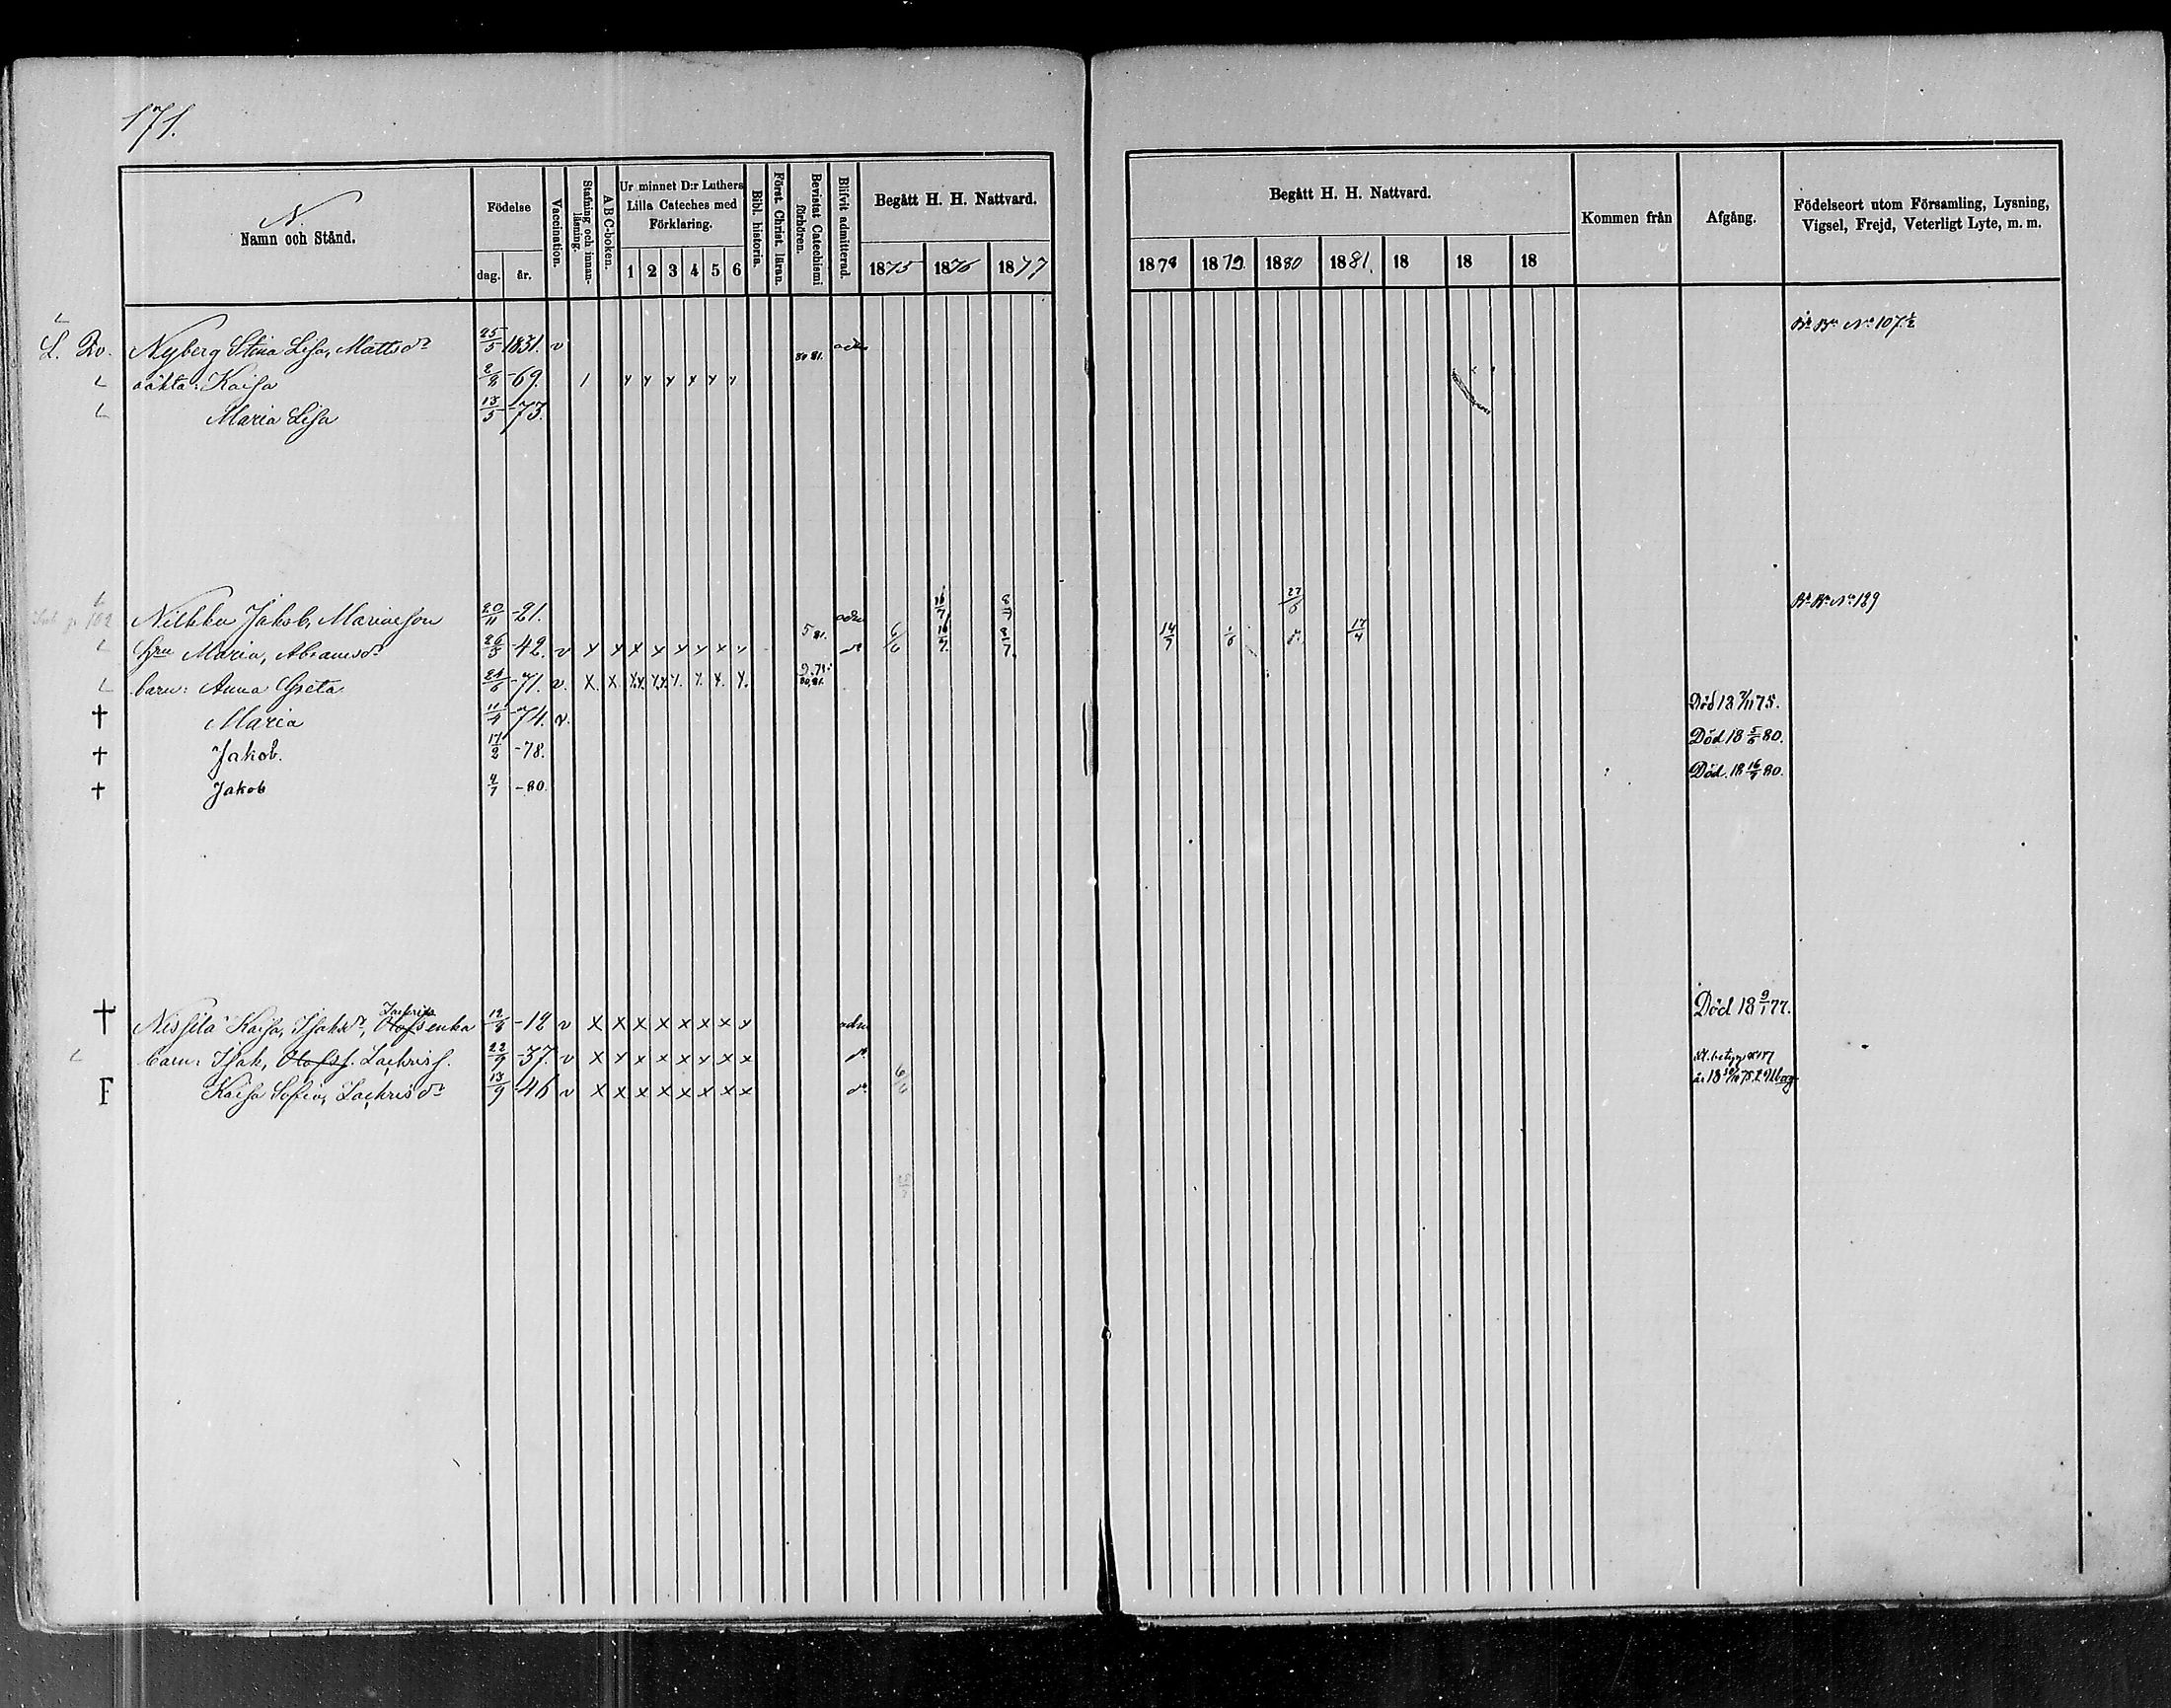 171.
N.
Namn och Stånd.
Födelse
dag.
år.
Vaccination.
Stafning och innanläsning.
A B C-boken.
Ur minnet D:r Luthers
Lilla Cateches med
Förklaring.
1 2 3 4 5 6
Bibl. historia.
Först. Christ. läran.
Bevistat Catechismi förhören.
Blifvit admitterad.
Begått H. H. Nattvard.
1875 1876 1877
Begått H. H. Nattvard.
1878 1879. 1880 1881. 18 18 18
Kommen från
Afgång.
Födelseort utom Församling, Lysning,
Vigsel, Frejd, Veterligt Lyte, m. m.
Nyberg Stina Lisa, Mattsdr 25/5 1831. v 80 81. adm Bn No 107½
oäkta: Kaisa 2/8 -69.
Maria Lisa 13/5 -73.
Nilkku Jakob, Mariaeson 20/11 -21. adm 16/7 8/7 27/6 No 189
Hru Maria, Abramsdr 26/5 -42. v x x x x x x x 5 81. do 6/6 16/7. 8/7. 14/7 1/6 do 17/4
barn: Anna Greta 24/6 -71. v. x. x 80, 81.
† Maria 11/4 -74. v. Död 18 7/11 75.
† Jakob. 17/2 -78. Död 18 5/6 80.
† Jakob 4/7 -80. Död. 18 16/7 80.
† Nissilä Kaisa, Isaksdr, Olofsenka 12/3 -12 v x x x x x x x x adm Död 18 9/1 77.
barn: Isak, Olofss. Zachriss. 22/9 -37. v x x x x x x x x do
F Kaisa Sofia, Zachrisdr 13/9 -46 v x x x x x x x x do 6/6